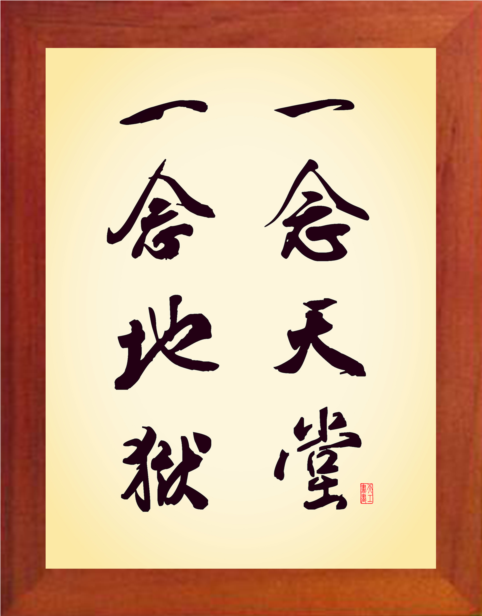 一念天堂
一念地獄